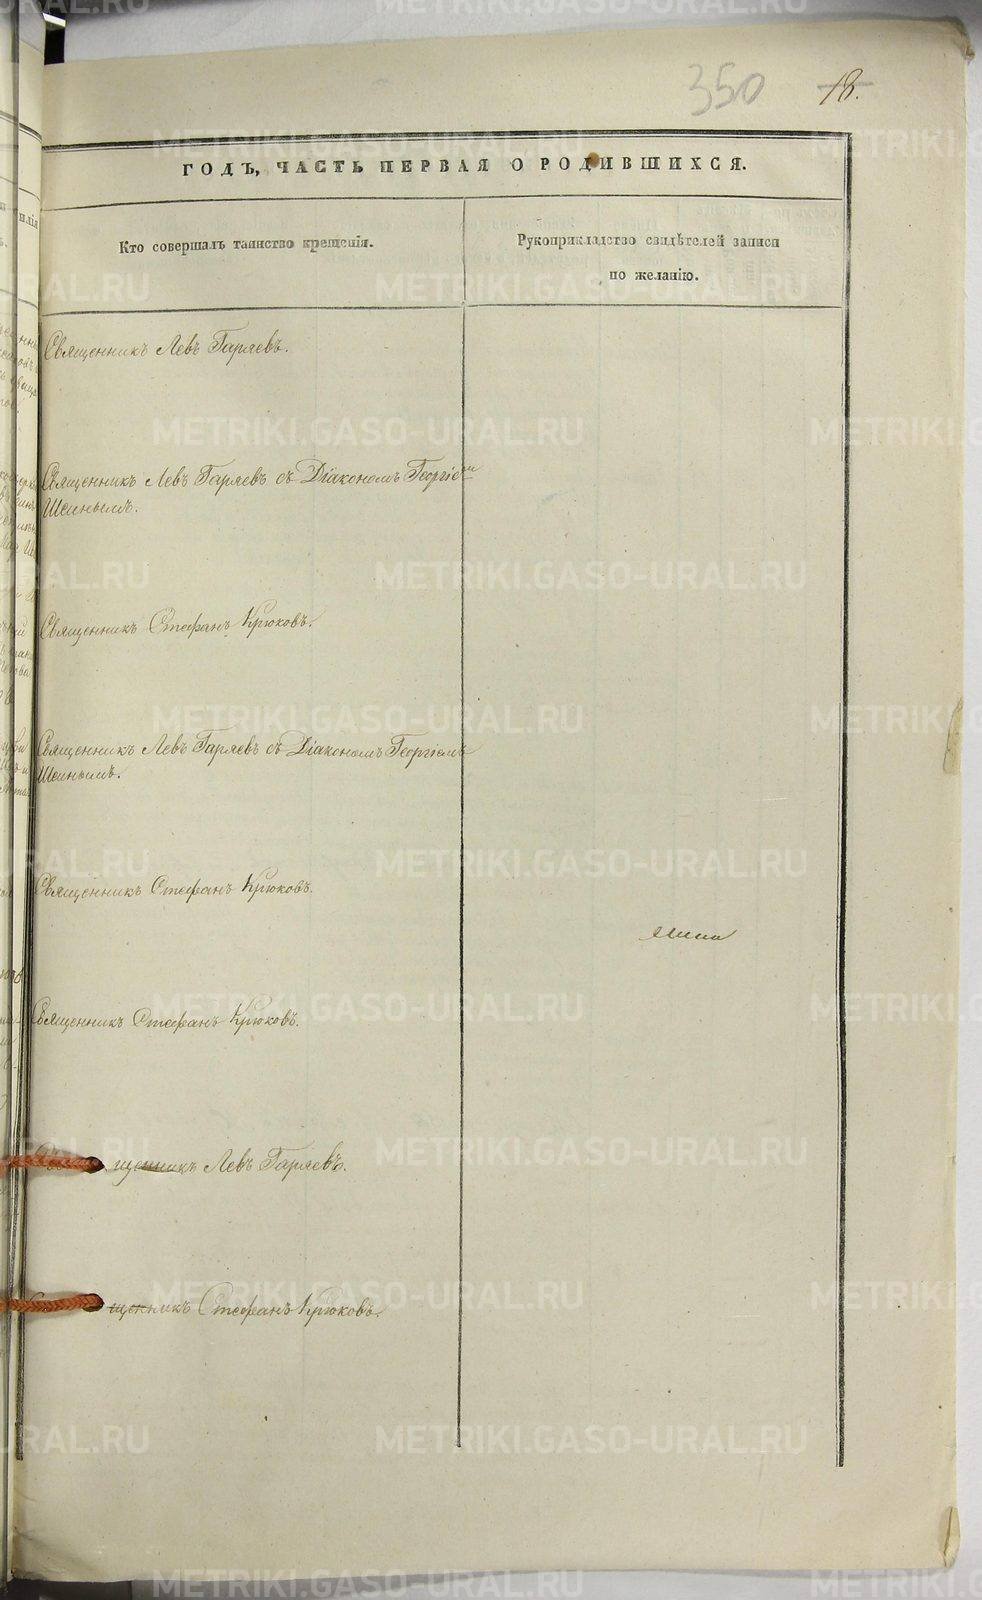 350 18.
ГОДЪ, ЧАСТЬ ПЕРВАЯ О РОДИВШИХСЯ.
Кто совершалъ таинство крещенія.
Рукоприкладство свидѣтелей записи
по желанію.
Священникъ Левъ Гаряевъ.
Священникъ Левъ Гаряевъ съ Діакономъ Георгіемъ
Шеинымъ.
Священникъ Стефанъ Крюковъ.
Священникъ Левъ Гаряевъ съ Діакономъ Георгіемъ
Шеинымъ.
Священникъ Стефанъ Крюковъ.
Священникъ Стефанъ Крюковъ.
щенникъ Левъ Гаряевъ.
щенникъ Стефанъ Крюковъ.
METRIKI.GASO-URAL.RU